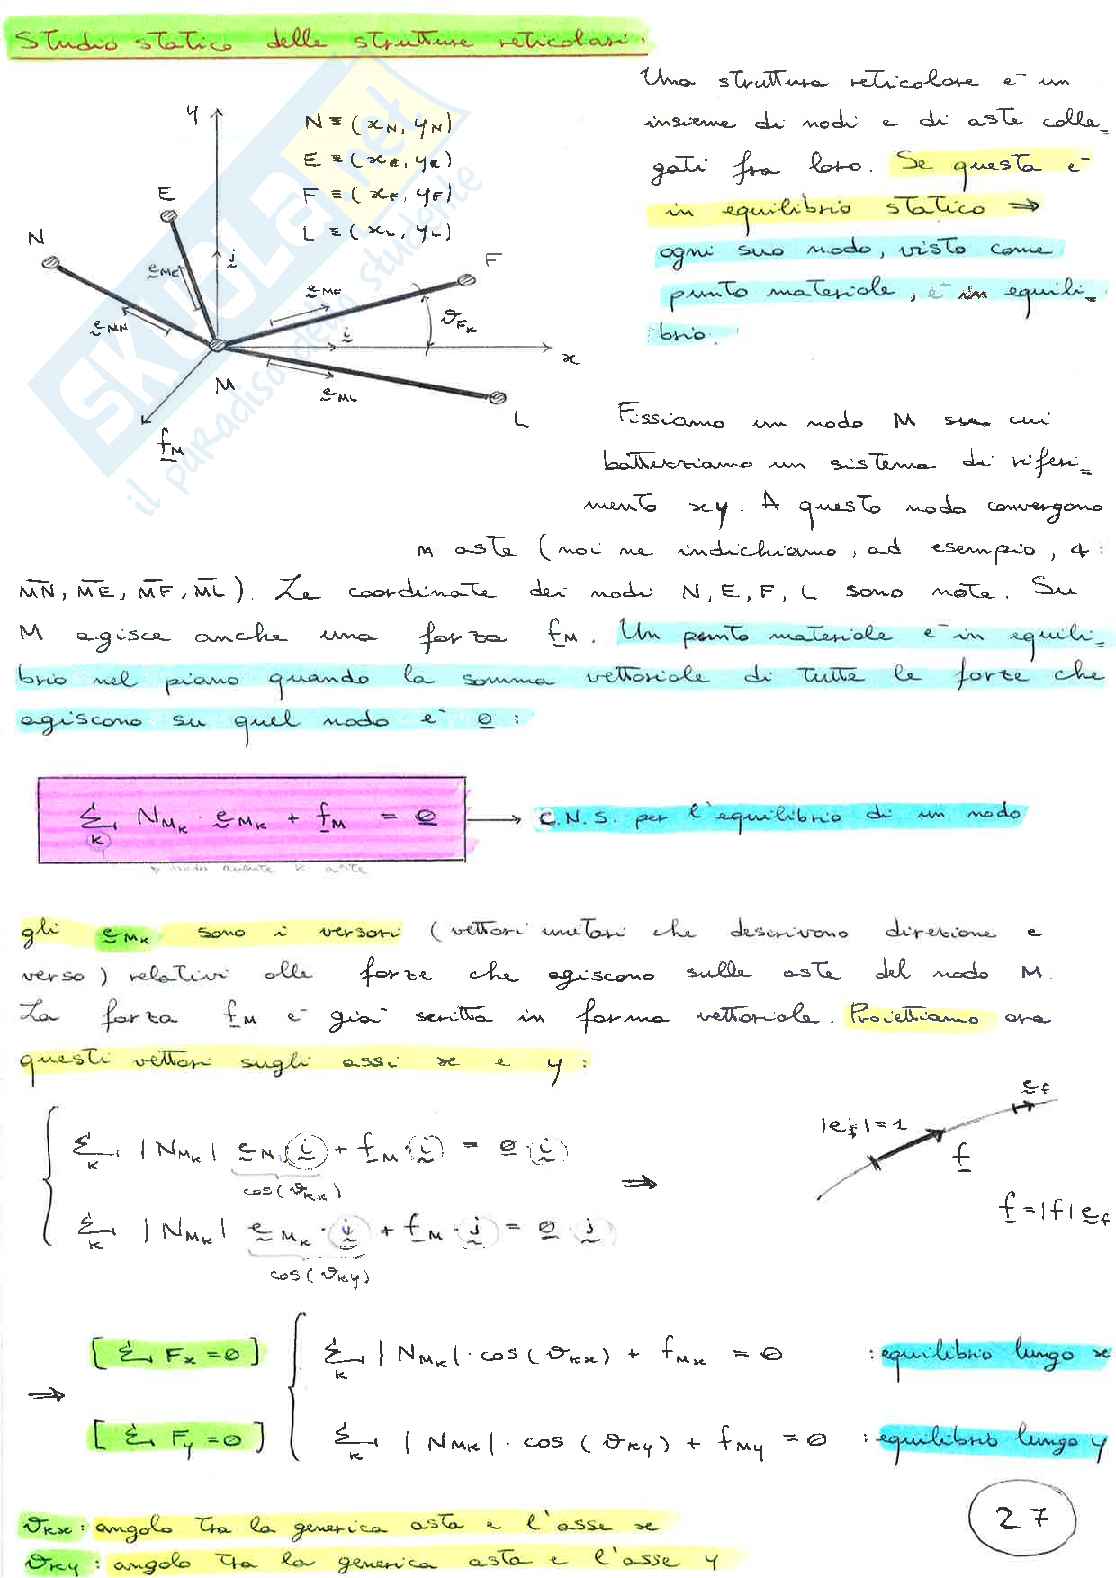 Studio statico delle strutture reticolari.
Una struttura reticolare è un
insieme di nodi e di aste colle=
gati fra loro. Se questa è
in equilibrio statico ⇒
ogni suo nodo, visto come
punto materiale, è in equili=
brio.
y
N ≡ (xN, yN)
E ≡ (xE, yE)
F ≡ (xF, yF)
L ≡ (xL, yL)
E
N
F
j
eME
eMF
eMN
ϑFx
i
x
M
eML
L
fM
SKUOLA.net
il paradiso dello studente
Fissiamo un nodo M su cui
battezziamo un sistema di riferi=
mento xy. A questo nodo convergono
m aste (noi ne indichiamo, ad esempio, 4:
MN, ME, MF, ML). Le coordinate dei nodi N, E, F, L sono note. Su
M agisce anche una forza fM. Un punto materiale è in equili=
brio nel piano quando la somma vettoriale di tutte le forze che
agiscono su quel nodo è 0:
Σk NMk · eMk + fM = 0 → C.N.S. per l'equilibrio di un nodo
k aste
gli eMk sono i versori (vettori unitari che descrivono direzione e
verso) relativi alle forze che agiscono sulle aste del nodo M.
La forza fM è già scritta in forma vettoriale. Proiettiamo ora
questi vettori sugli assi x e y:
Σk |NMk| eM · i + fM · i = 0 · i
cos(ϑkx)
⇒
Σk |NMk| eMk · j + fM · j = 0 · j
cos(ϑky)
ef
|ef| = 1
f
f = |f| ef
⇒
[Σ Fx = 0] Σk |NMk| · cos(ϑkx) + fMx = 0 : equilibrio lungo x
[Σ Fy = 0] Σk |NMk| · cos(ϑky) + fMy = 0 : equilibrio lungo y
ϑkx : angolo tra la generica asta e l'asse x
ϑky : angolo tra la generica asta e l'asse y
27